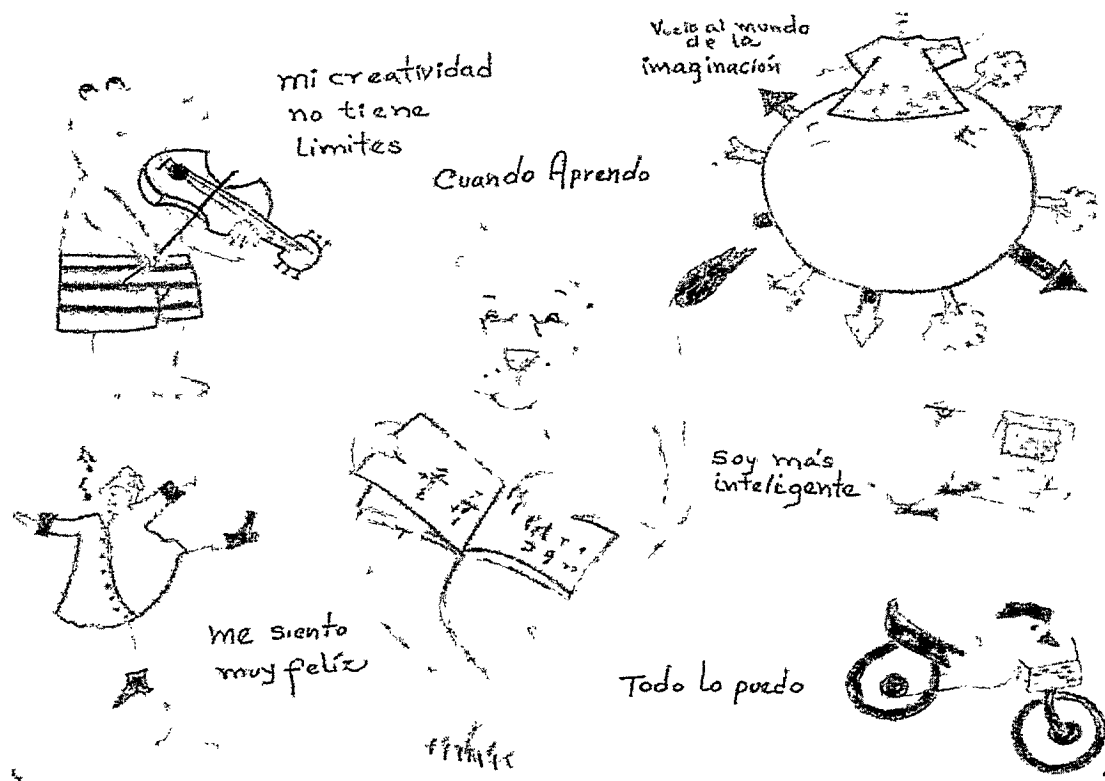 mi creatividad
no tiene
Limites
Vuelo al mundo
de la
imaginación
Cuando Aprendo
Soy más
inteligente
me siento
muy felíz
Todo lo puedo